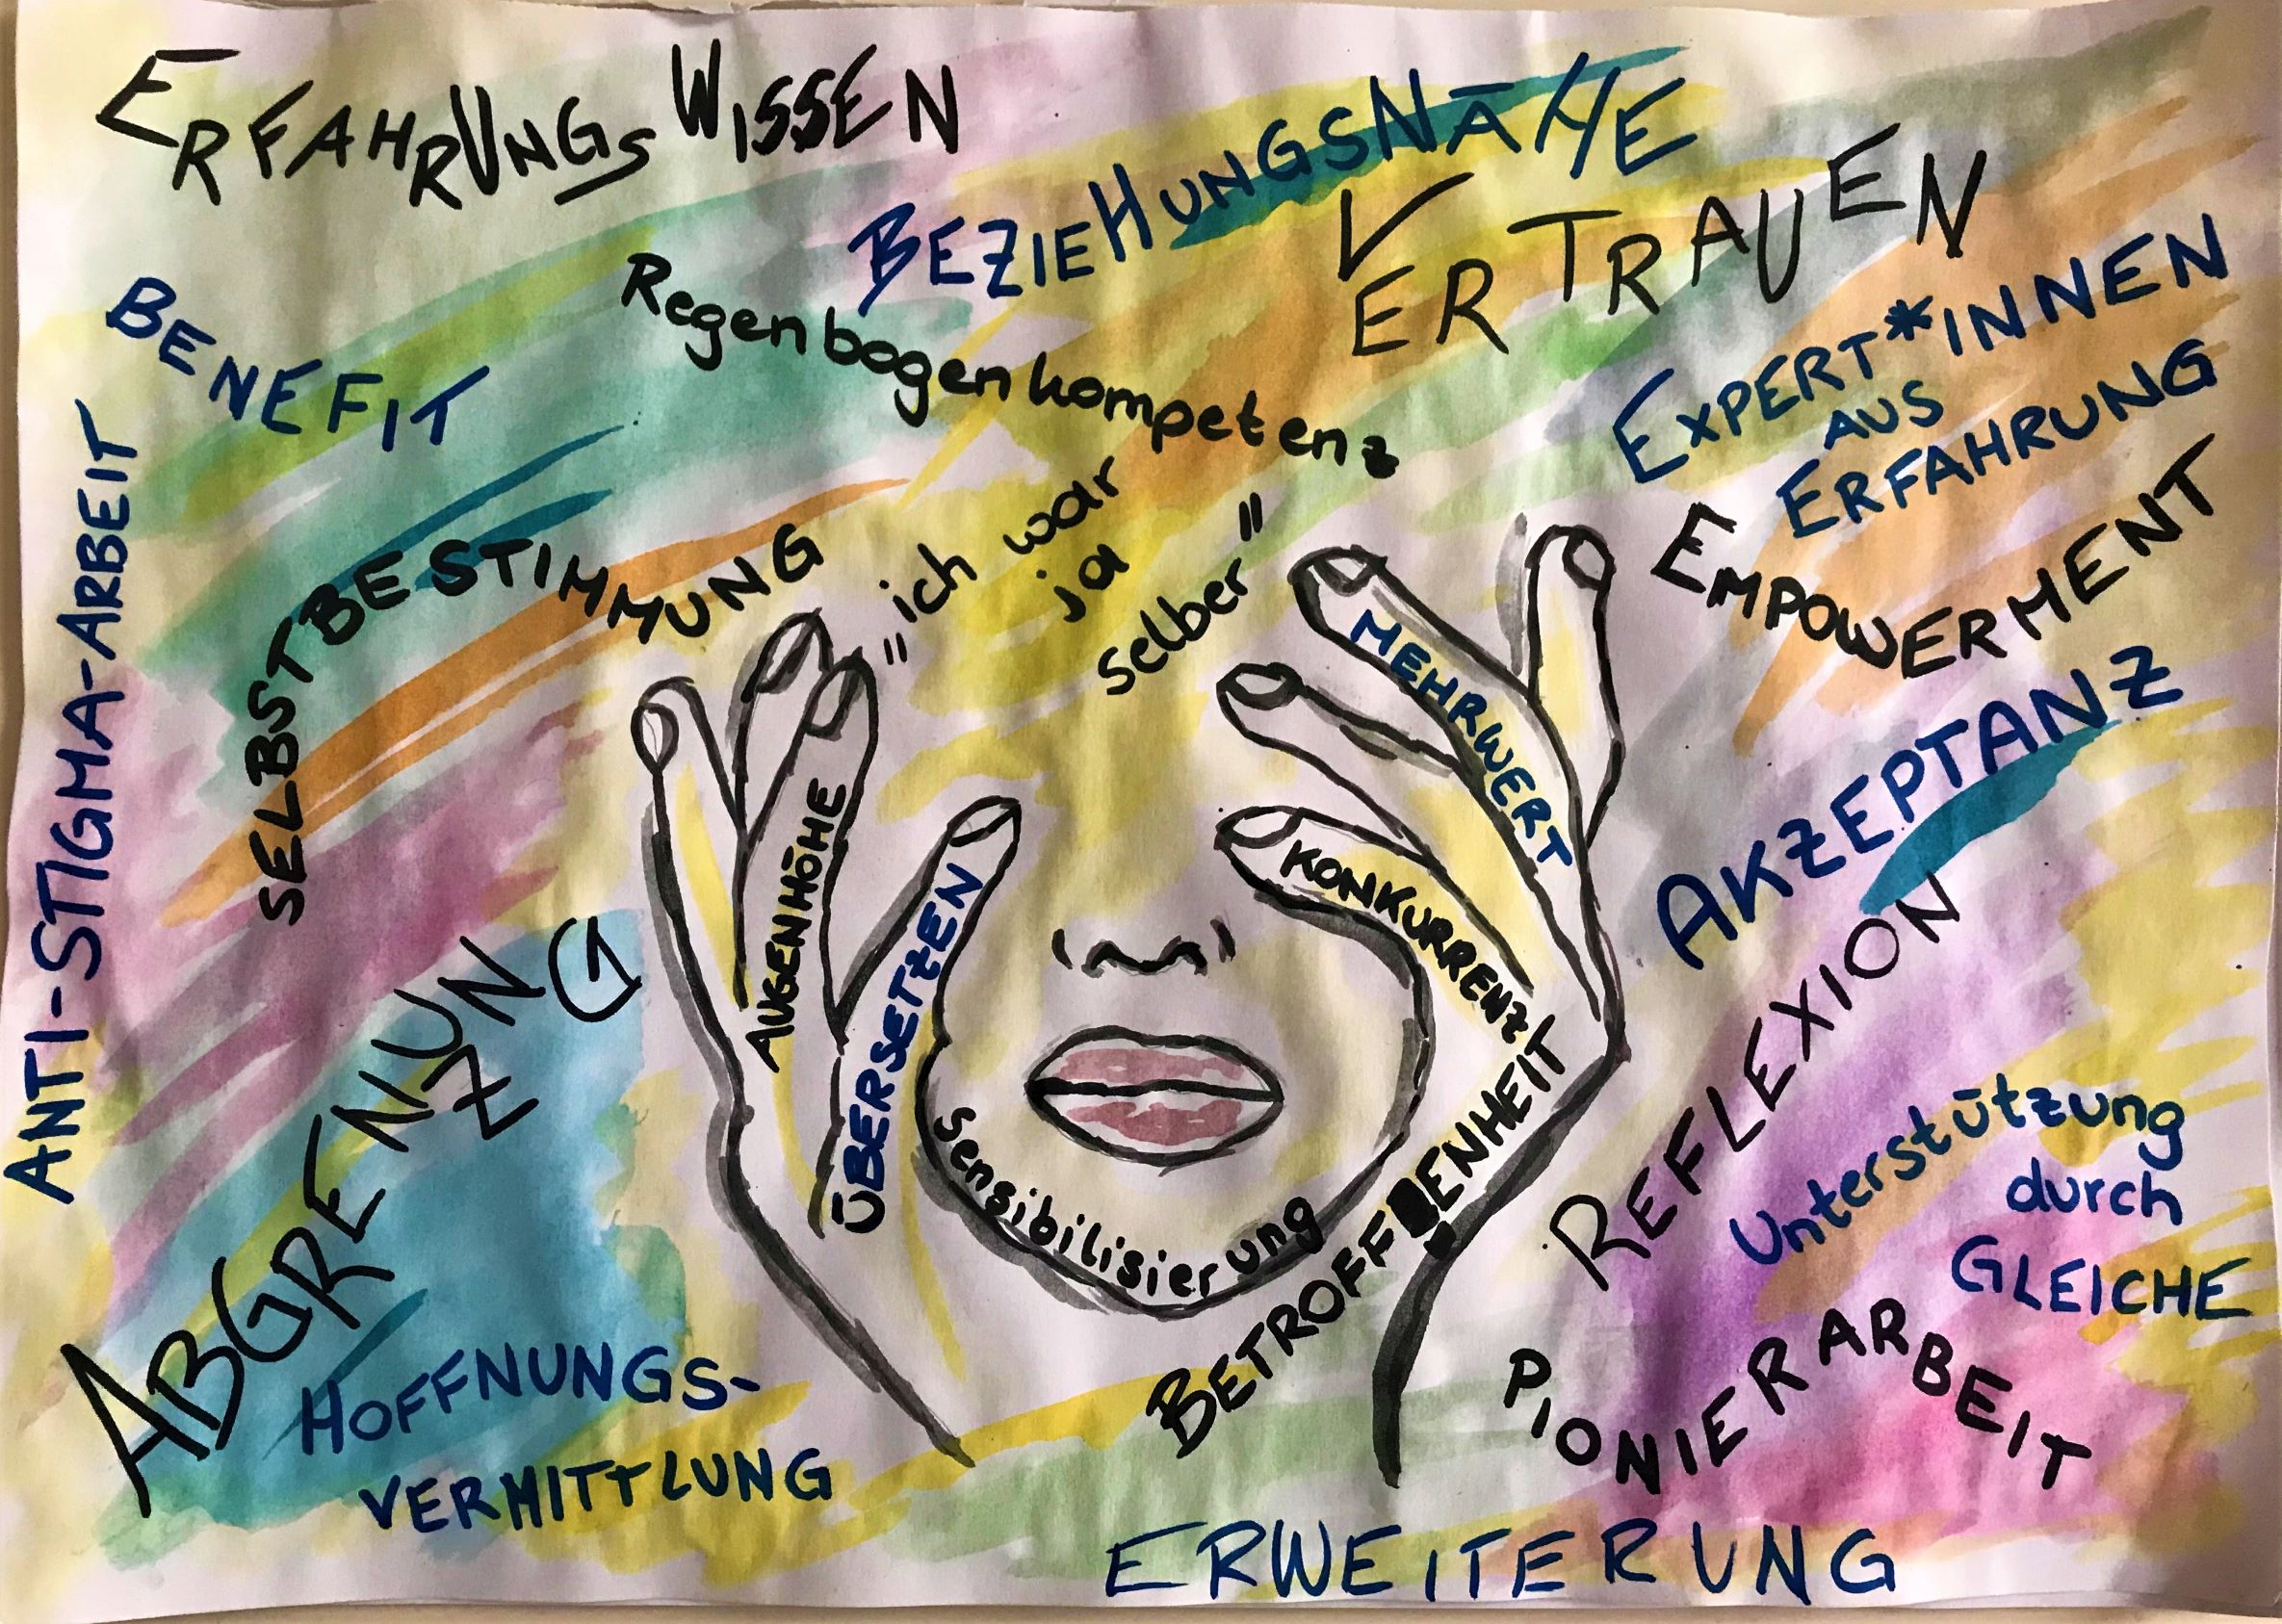 ERFAHRUNGSWISSEN
BEZIEHUNGSNÄHE
VERTRAUEN
BENEFIT
Regenbogenkompetenz
EXPERT*INNEN
AUS
ERFAHRUNG
ANTI-STIGMA-ARBEIT
SELBSTBESTIMMUNG
"ich war
ja
selber"
EMPOWERMENT
MEHRWERT
AKZEPTANZ
AUGENHÖHE
ÜBERSETZEN
KONKURRENZ
ABGRENZUNG
REFLEXION
Sensibilisierung
BETROFFENHEIT
Unterstützung
durch
GLEICHE
HOFFNUNGS-
VERMITTLUNG
PIONIERARBEIT
ERWEITERUNG